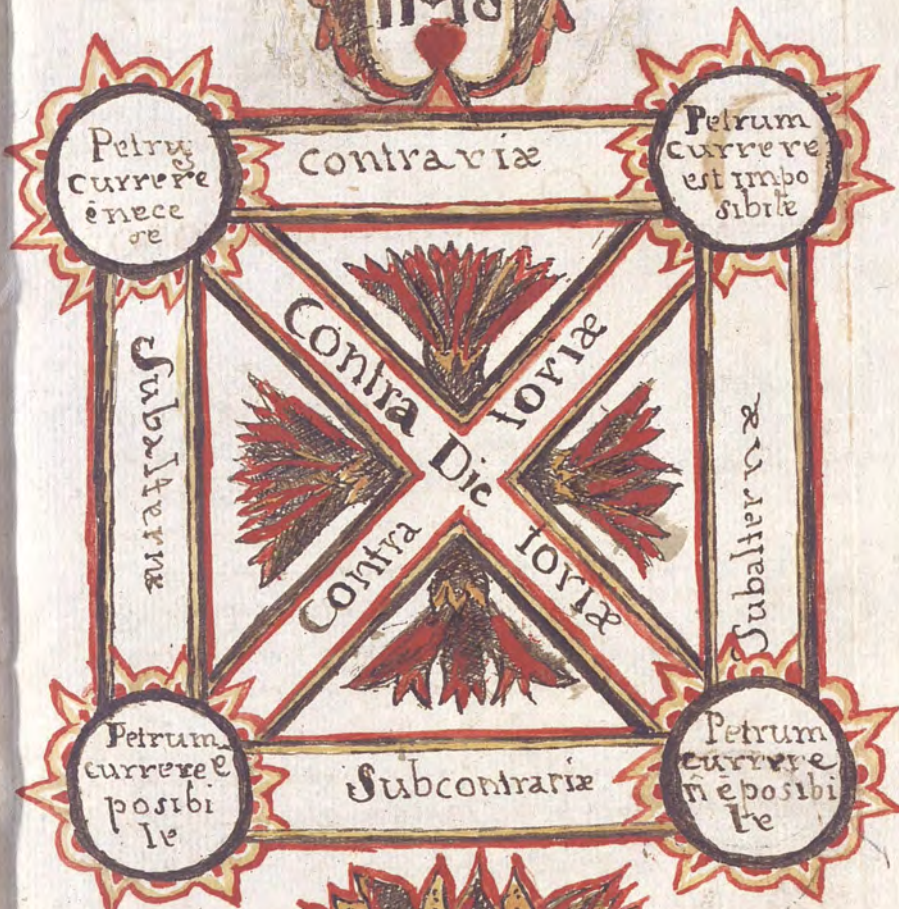 Petrũ
currere
ē nece
se
contrariæ
Petrum
currere
est impo
sibile
Contra
Dic
toriæ
Contra
toriæ
Subalternæ
Subalternæ
Petrum
currere ē
posibi
le
Subcontrariæ
Petrum
currere
n̄ ē posibi
le